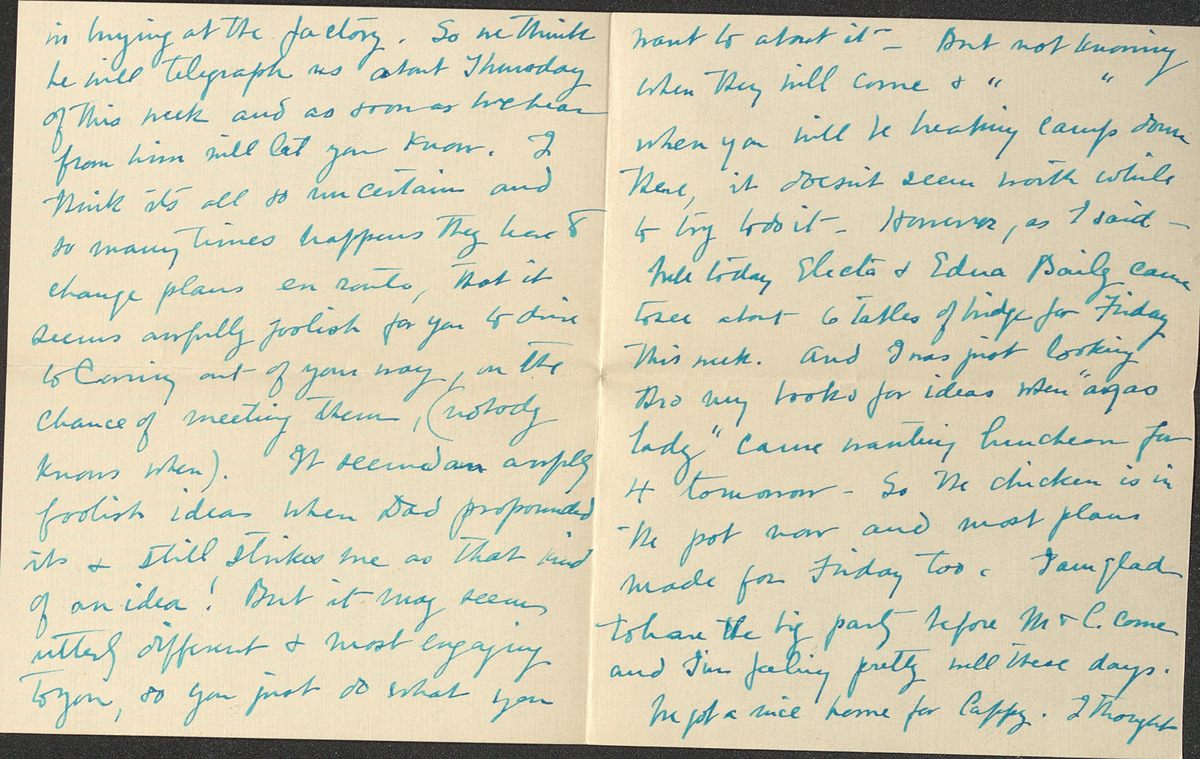 in buying at the factory. So we think
he will telegraph us about Thursday
of this week and as soon as we hear
from him will let you know. I
think it's all so uncertain and
so many times happens they have to
change plans en route, that it
seems awfully foolish for you to drive
to Corning out of your way, on the
chance of meeting them, (nobody
knows when). It seemed an awfully
foolish ideas when Dad propounded
its & still strikes me as that kind
of an idea! But it may seem
utterly different & most engaging
to you, so you just do what you
want to about it - But not knowing
when they will come & " "
when you will be breaking camp down
there, it doesn't seem worth while
to try to do it - However, as I said -
today Electa & Edna Baily came
to see about 6 tables of bridge for Friday
this week. And I was just looking
thro my books for ideas when "a gas
lady" came wanting luncheon for
4 tomorrow - So the chicken is in
the pot now and most plans
made for Friday too. I am glad
to have the big party before M & C. come
and I'm feeling pretty well these days.
We got a nice home for Cappy. I thought